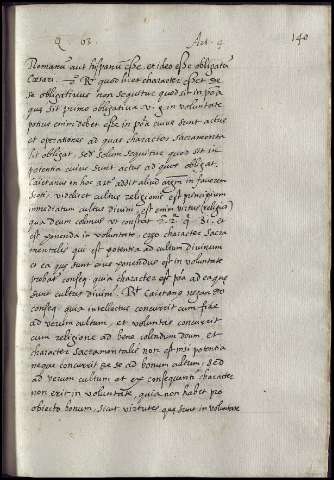 Q. 63. Art. 4 140
Romanu aut hispanu esse, et ideo esse obligatu
Cæsari. Rr quod licet character esset de
se obligativus non sequitur quod sit in po.ª
quæ sit primo obligativa v. g. in voluntate
potius enim debet esse in po.ª cuius sunt actus
et operationes ad quas character sacramenta
lis obligat, sed solum sequitur quod sit in
potentia cuius sunt actus ad quos obligat.
Caietanus in hoc art. addit aliud in favorem
Scoti. videlicet cultus religionis est principium
immediatum cultus divini est enim virtus (religio)
qua deum colimus ut constat 2.ª 2.ª q. 81. et
est ponenda in voluntate, ergo character sacra
mentalis qui est potentia ad cultum divinum
et ea quæ sunt eius ponendus est in voluntate
probat conseq. quia character est po.ª ad ea quæ
sunt cultus divini. Rr Caietano negando
conseq. quia intellectus concurrit cum fide
ad verum cultum, et voluntas concurrit
cum religione ad bene colendum deum et
character sacramentalis non est nisi potentia
neque concurrit de se ad bonum cultum sed
ad verum cultum et ex consequenti character
non erit in voluntate, quia non habet pro
obiecto bonum, sicut virtutes quæ sunt in voluntate